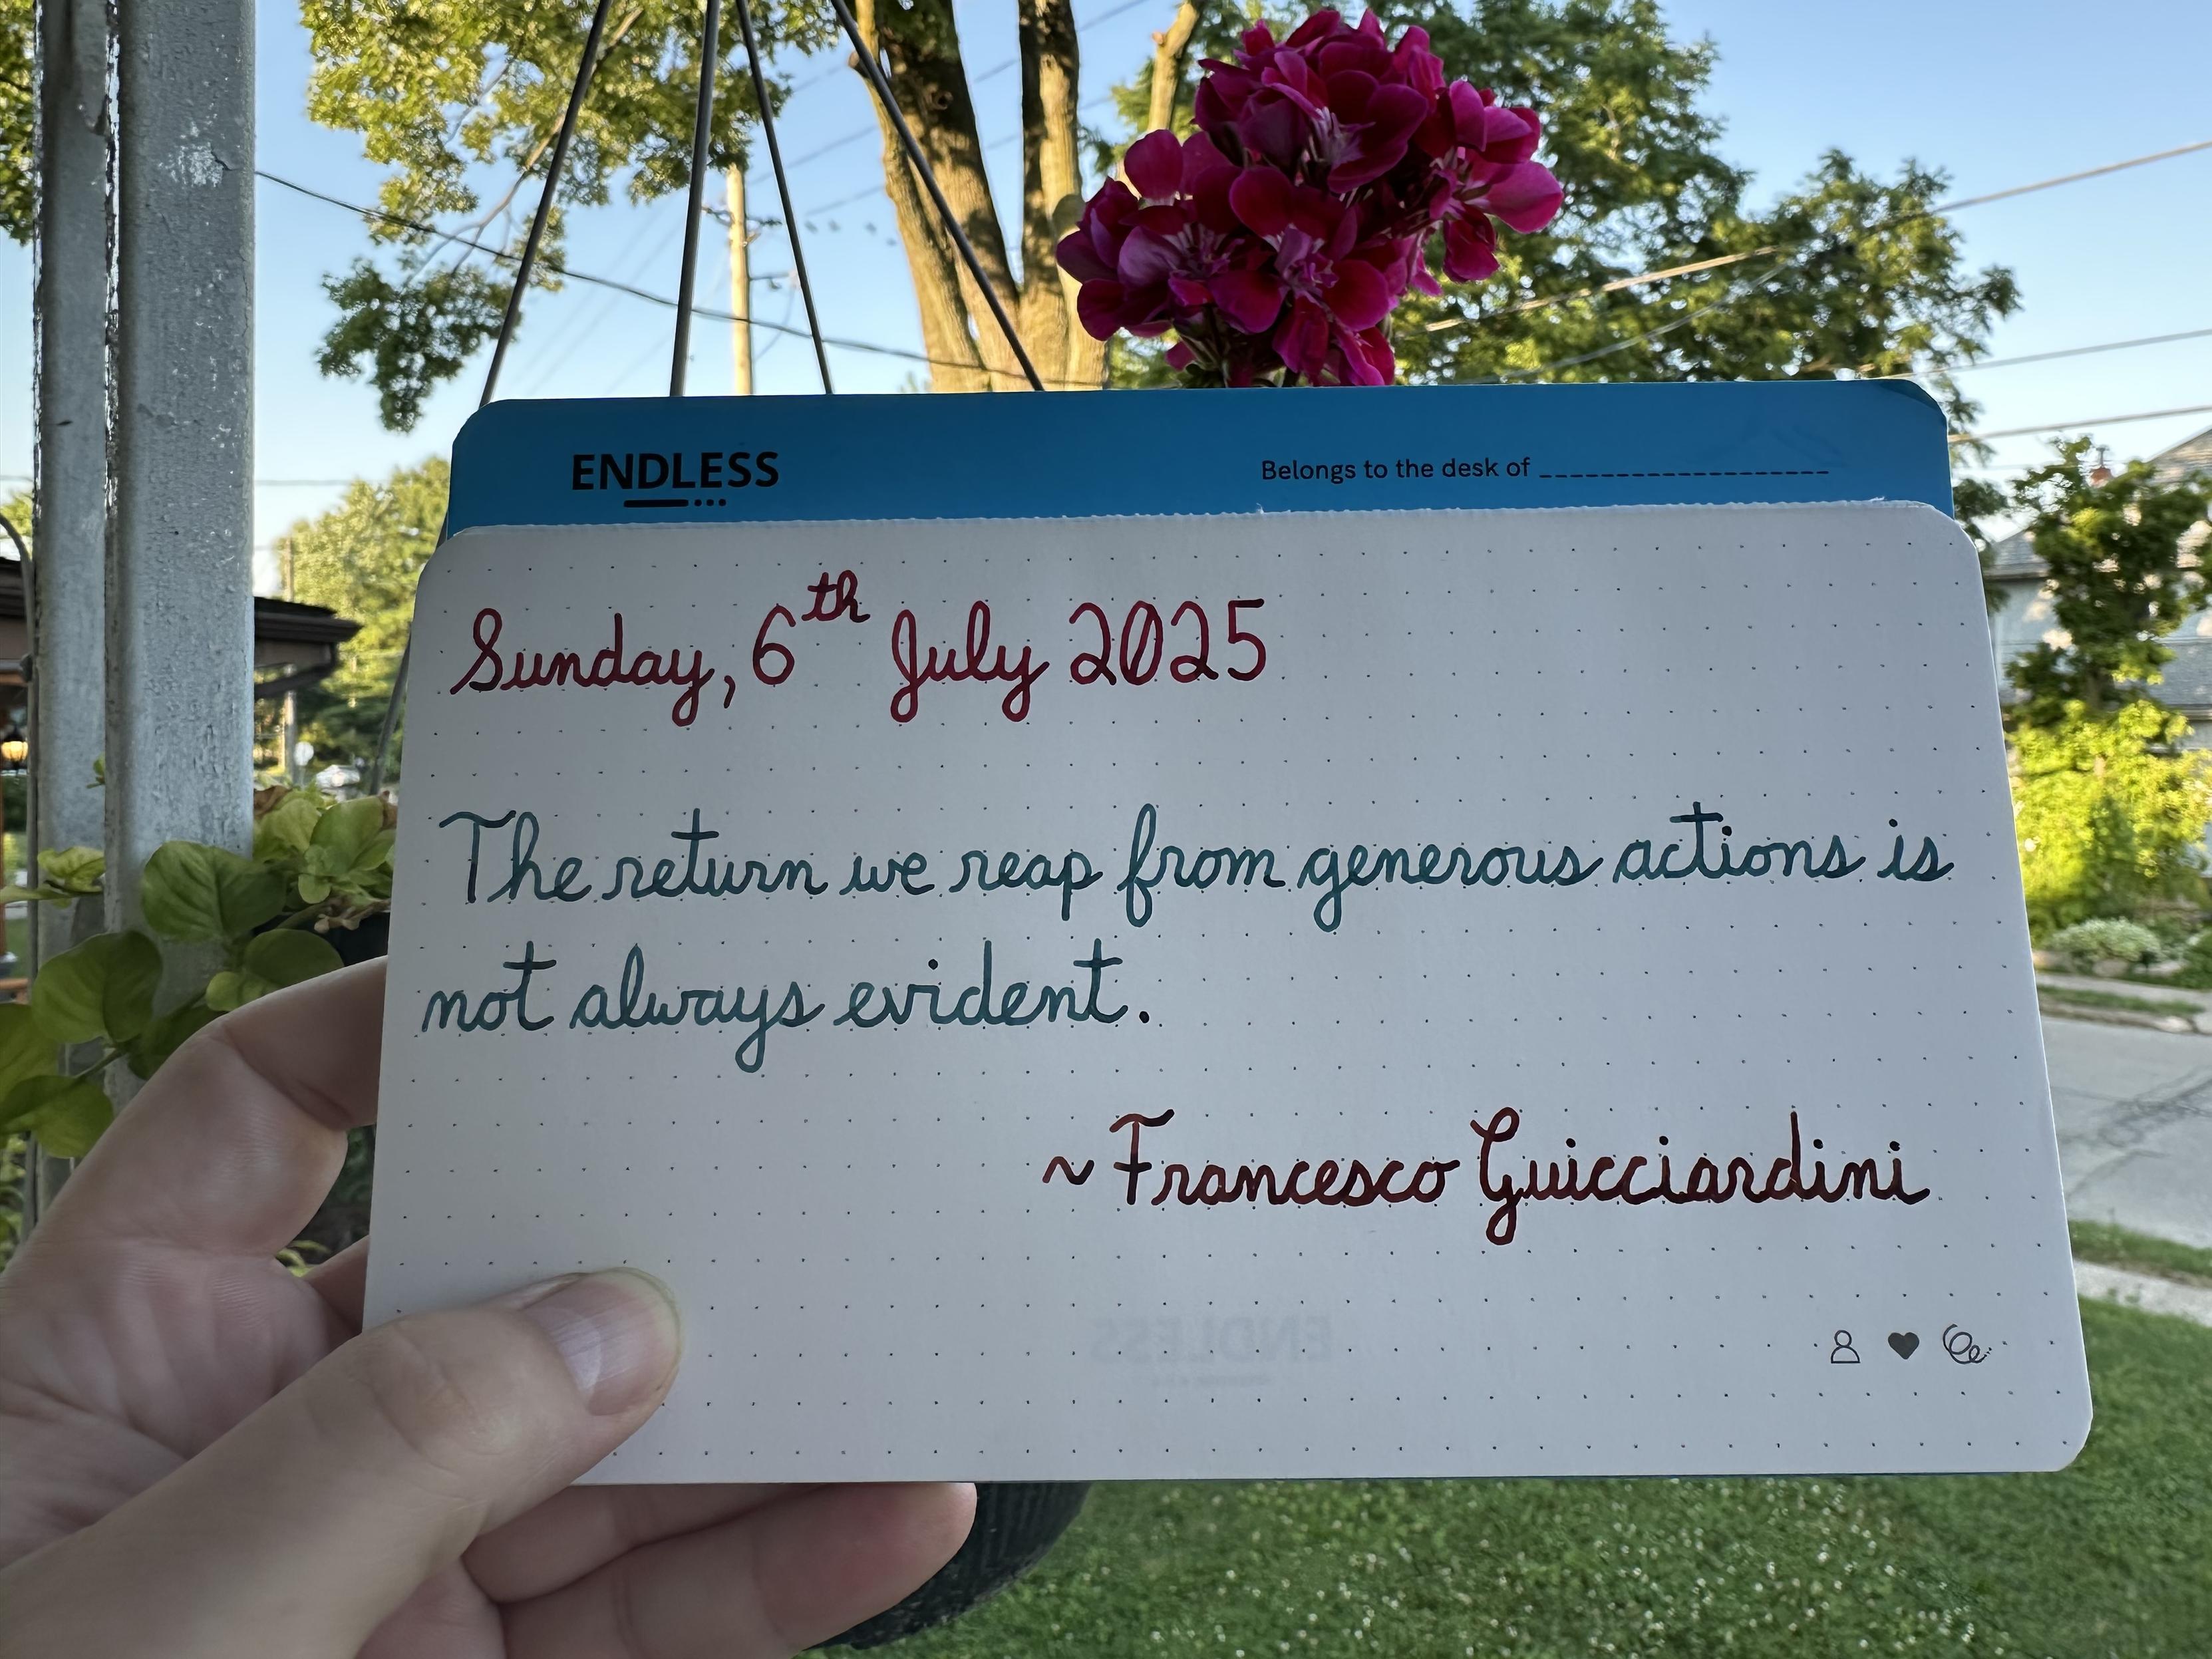 ENDLESS
Belongs to the desk of ____________________
Sunday, 6th July 2025
The return we reap from generous actions is
not always evident.
~ Francesco Guicciardini
ENDLESS